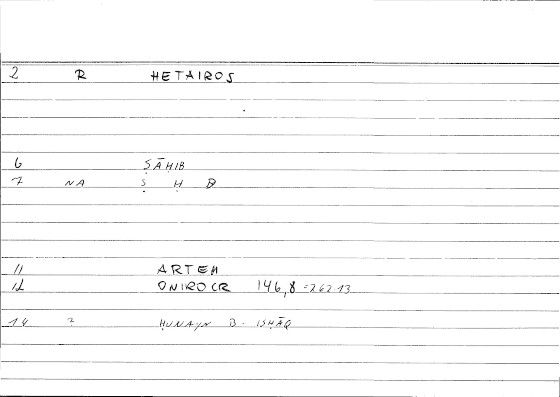 2 R HETAIROS
6 ṢĀḤIB
7 NA Ṣ Ḥ B
11 ARTEM
12 ONIROCR 146,8 = 262.13
14 7 ḤUNAYN B. ISḤĀQ